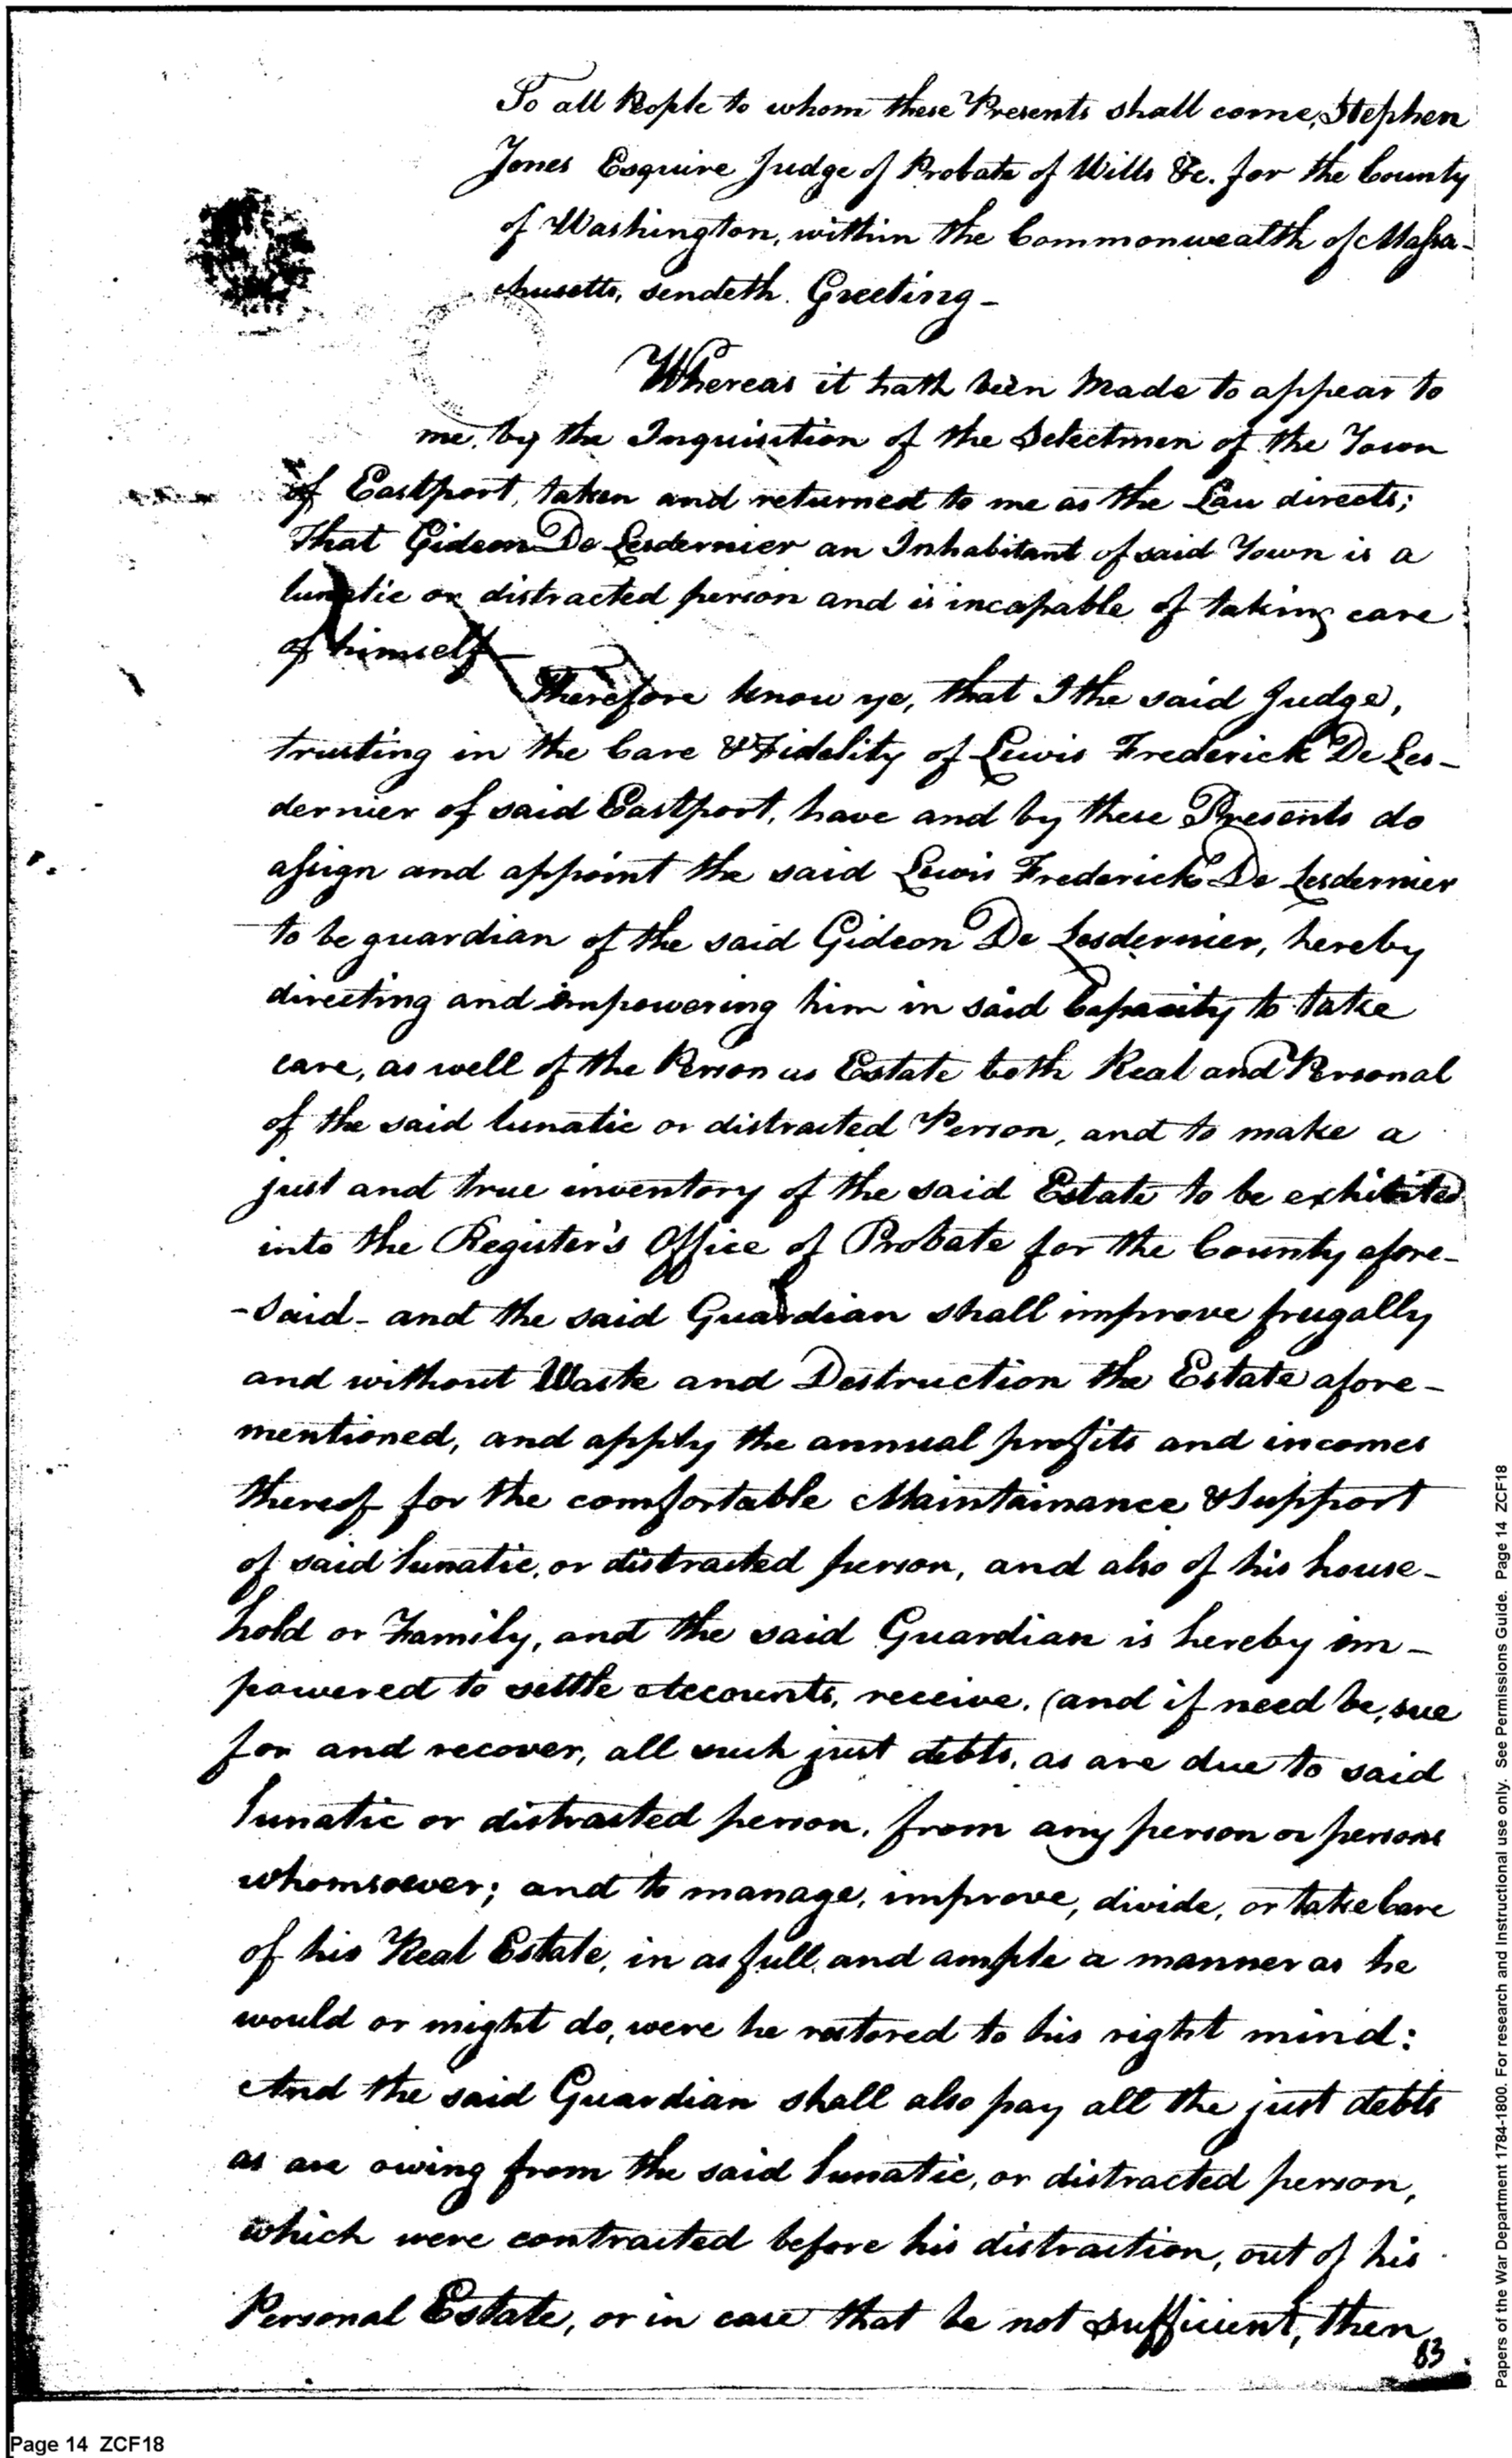 To all People to whom these Presents shall come, Stephen
Jones Esquire Judge of Probate of Wills &c. for the County
of Washington, within the Commonwealth of Massa-
chusetts, sendeth. Greeting-
Whereas it hath been Made to appear to
me, by the Inquisition of the Selectmen of the Town
of Eastport, taken and returned to me as the Law directs;
That Gideon De Lesdernier an Inhabitant of said Town is a
lunatic or distracted person and is incapable of taking care
of himself-
Therefore know ye, that I the said Judge,
trusting in the Care & Fidelity of Lewis Frederick De Les-
dernier of said Eastport, have and by these Presents do
assign and appoint the said Lewis Frederick De Lesdernier
to be guardian of the said Gideon De Lesdernier, hereby
directing and impowering him in said Capacity to take
care, as well of the Person as Estate both Real and Personal
of the said lunatic or distracted Person, and to make a
just and true inventory of the said Estate to be exhibited
into the Register's Office of Probate for the County afore-
-said- and the said Guardian shall improve frugally
and without Waste and Destruction the Estate afore-
mentioned, and apply the annual profits and incomes
thereof for the comfortable Maintainance & Support
of said lunatic, or distracted person, and also of his house-
hold or Family, and the said Guardian is hereby im-
powered to settle Accounts, receive, (and if need be, sue
for and recover, all such just debts, as are due to said
lunatic or distracted person, from any person or persons
whomsoever; and to manage, improve, divide, or take Care
of his Real Estate, in as full and ample a manner as he
would or might do, were he restored to his right mind:
And the said Guardian shall also pay all the just debts
as are owing from the said lunatic, or distracted person,
which were contracted before his distraction, out of his
Personal Estate, or in case that be not sufficient, then
83
Page 14 ZCF18
Papers of the War Department 1784-1800. For research and Instructional use only. See Permissions Guide. Page 14 ZCF18